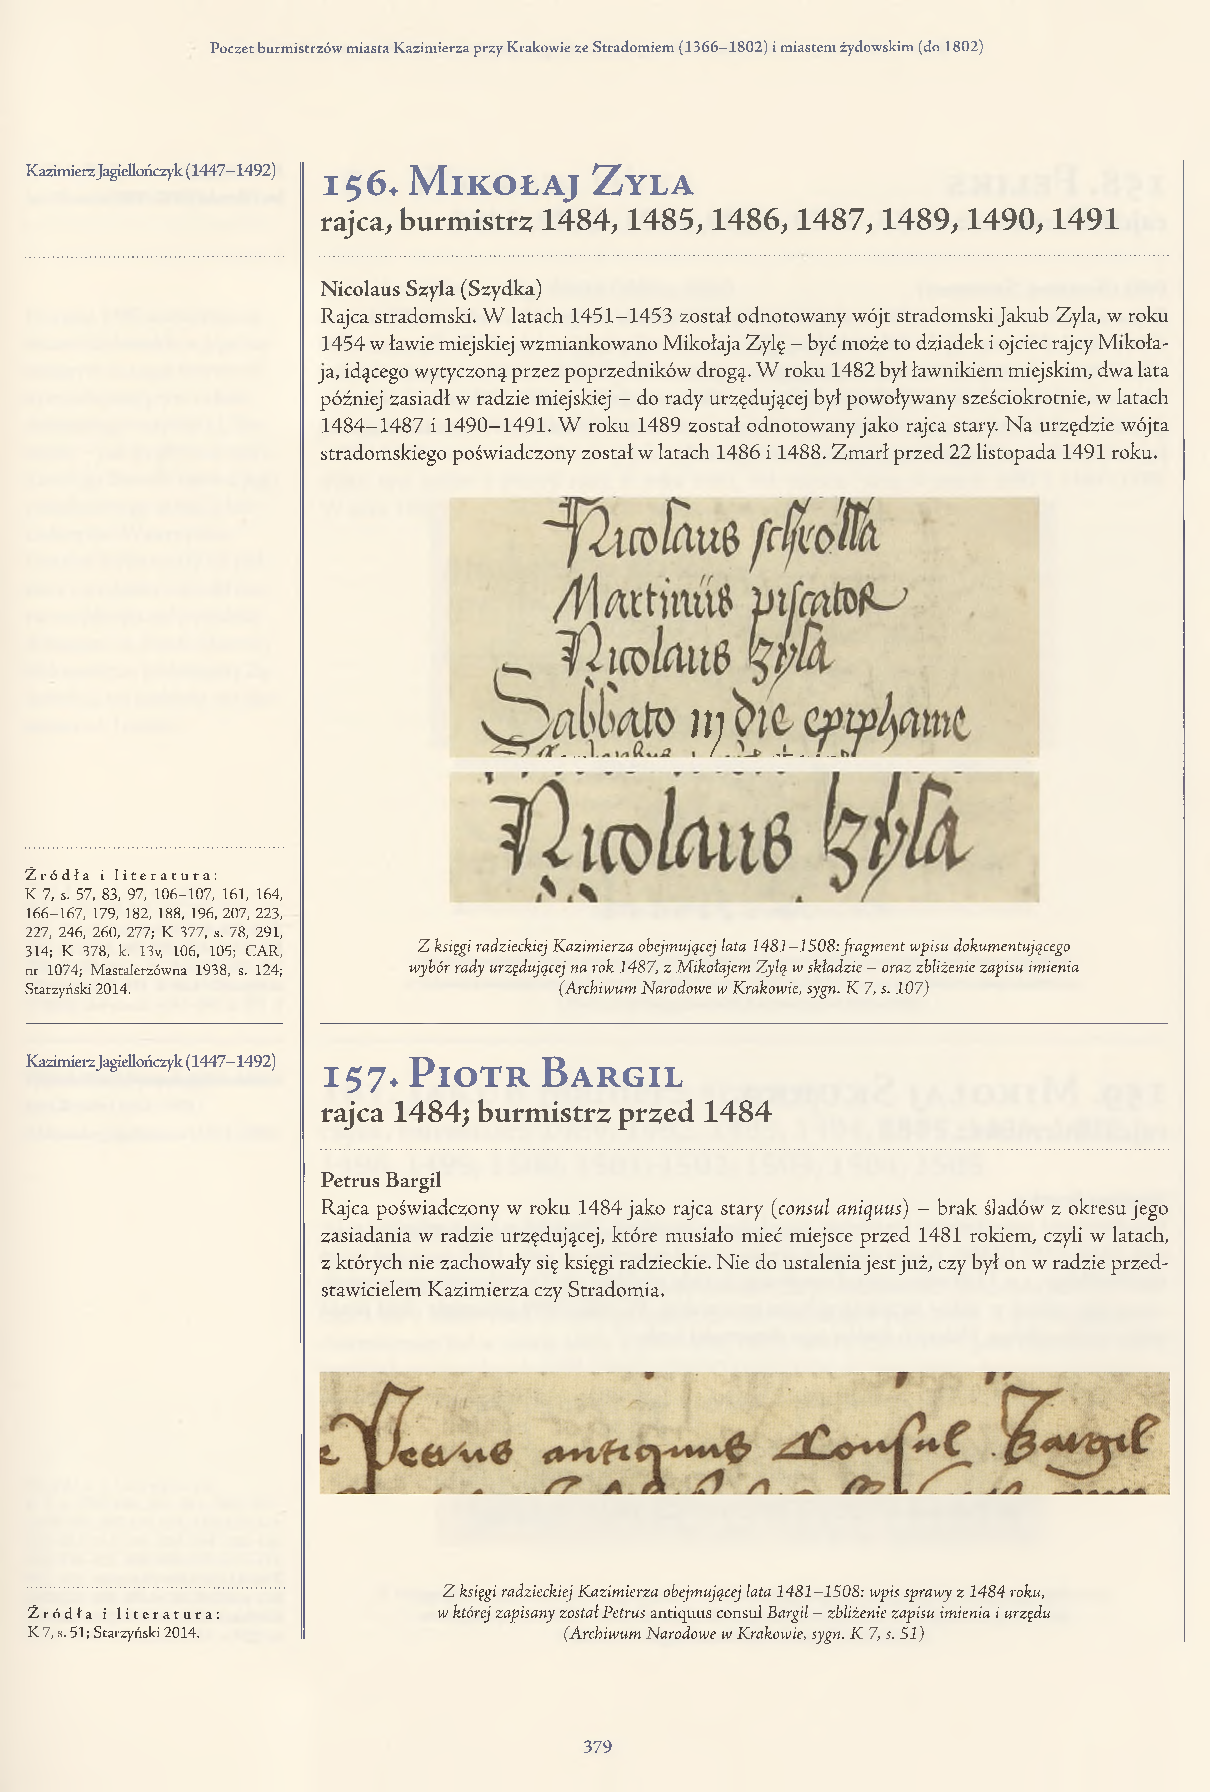 Poczet burmistrzów miasta Kazimierza przy Krakowie ze Stradomiem (1366–1802) i miastem żydowskim (do 1802)
Kazimierz Jagiellończyk (1447–1492)
156. Mikołaj Zyla
rajca, burmistrz 1484, 1485, 1486, 1487, 1489, 1490, 1491
Nicolaus Szyla (Szydka)
Rajca stradomski. W latach 1451–1453 został odnotowany wójt stradomski Jakub Zyla, w roku
1454 w ławie miejskiej wzmiankowano Mikołaja Zylę – być może to dziadek i ojciec rajcy Mikoła-
ja, idącego wytyczoną przez poprzedników drogą. W roku 1482 był ławnikiem miejskim, dwa lata
później zasiadł w radzie miejskiej – do rady urzędującej był powoływany sześciokrotnie, w latach
1484–1487 i 1490–1491. W roku 1489 został odnotowany jako rajca stary. Na urzędzie wójta
stradomskiego poświadczony został w latach 1486 i 1488. Zmarł przed 22 listopada 1491 roku.
Nicolaus
Martinus piscator
Nicolaus Zyla
Sabbato in die epiphanie
Nicolaus Zyla
Źródła i literatura:
K 7, s. 57, 83, 97, 106–107, 161, 164,
166–167, 179, 182, 188, 196, 207, 223,
227, 246, 260, 277; K 377, s. 78, 291,
314; K 378, k. 13v, 106, 105; CAR,
nr 1074; Mastalerzówna 1938, s. 124;
Starzyński 2014.
Z księgi radzieckiej Kazimierza obejmującej lata 1481–1508: fragment wpisu dokumentującego
wybór rady urzędującej na rok 1487, z Mikołajem Zylą w składzie – oraz zbliżenie zapisu imienia
(Archiwum Narodowe w Krakowie, sygn. K 7, s. 107)
Kazimierz Jagiellończyk (1447–1492)
157. Piotr Bargil
rajca 1484; burmistrz przed 1484
Petrus Bargil
Rajca poświadczony w roku 1484 jako rajca stary (consul aniquus) – brak śladów z okresu jego
zasiadania w radzie urzędującej, które musiało mieć miejsce przed 1481 rokiem, czyli w latach,
z których nie zachowały się księgi radzieckie. Nie do ustalenia jest już, czy był on w radzie przed-
stawicielem Kazimierza czy Stradomia.
Petrus antiquus Consul Bargil
Źródła i literatura:
K 7, s. 51; Starzyński 2014.
Z księgi radzieckiej Kazimierza obejmującej lata 1481–1508: wpis sprawy z 1484 roku,
w której zapisany został Petrus antiquus consul Bargil – zbliżenie zapisu imienia i urzędu
(Archiwum Narodowe w Krakowie, sygn. K 7, s. 51)
379